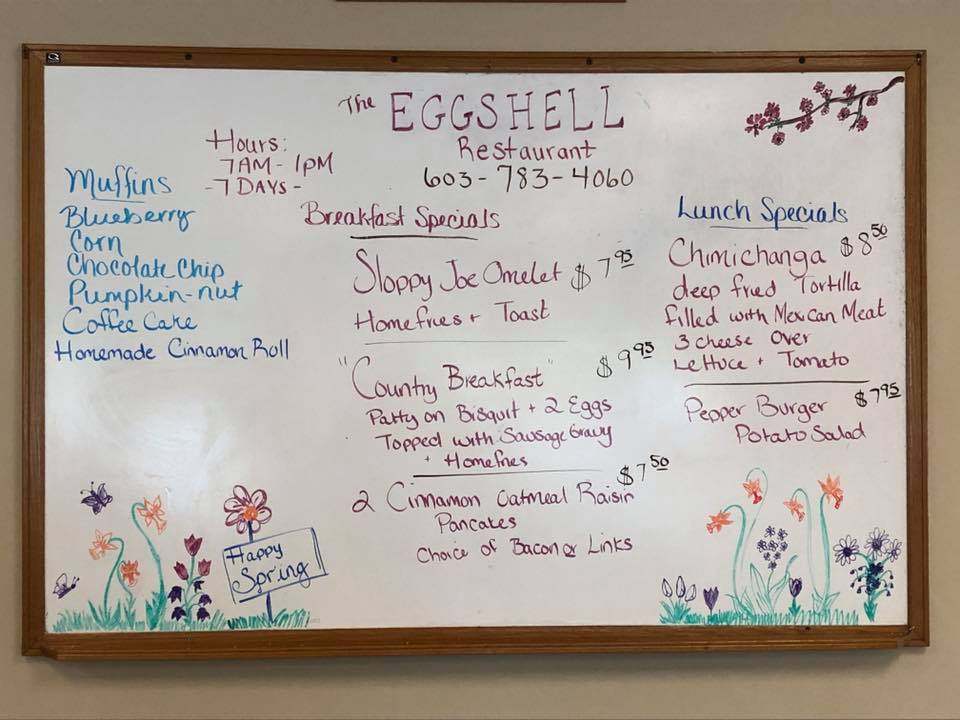 The EGGSHELL
Restaurant
603-783-4060
Hours:
7AM - 1PM
- 7 DAYS -
Muffins
Blueberry
Corn
Chocolate Chip
Pumpkin-nut
Coffee Cake
Homemade Cinnamon Roll
Breakfast Specials
Sloppy Joe Omelet $7.95
Homefries + Toast
"Country Breakfast" $9.95
Patty on Bisquit + 2 Eggs
Topped with Sausage Gravy
+ Homefries
$7.50
2 Cinnamon Oatmeal Raisin
Pancakes
Choice of Bacon or Links
Lunch Specials
Chimichanga $8.50
deep fried Tortilla
filled with Mexican Meat
3 cheese over
Lettuce + Tomato
Pepper Burger $7.95
Potato Salad
Happy
Spring